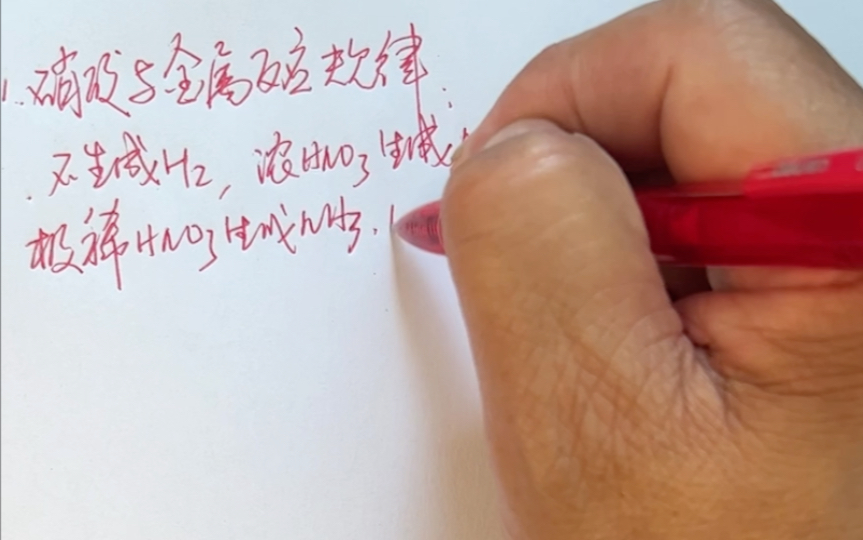 1. 硝酸与金属反应规律.
. 不生成H2, 浓HNO3生成
极稀HNO3生成NH3.